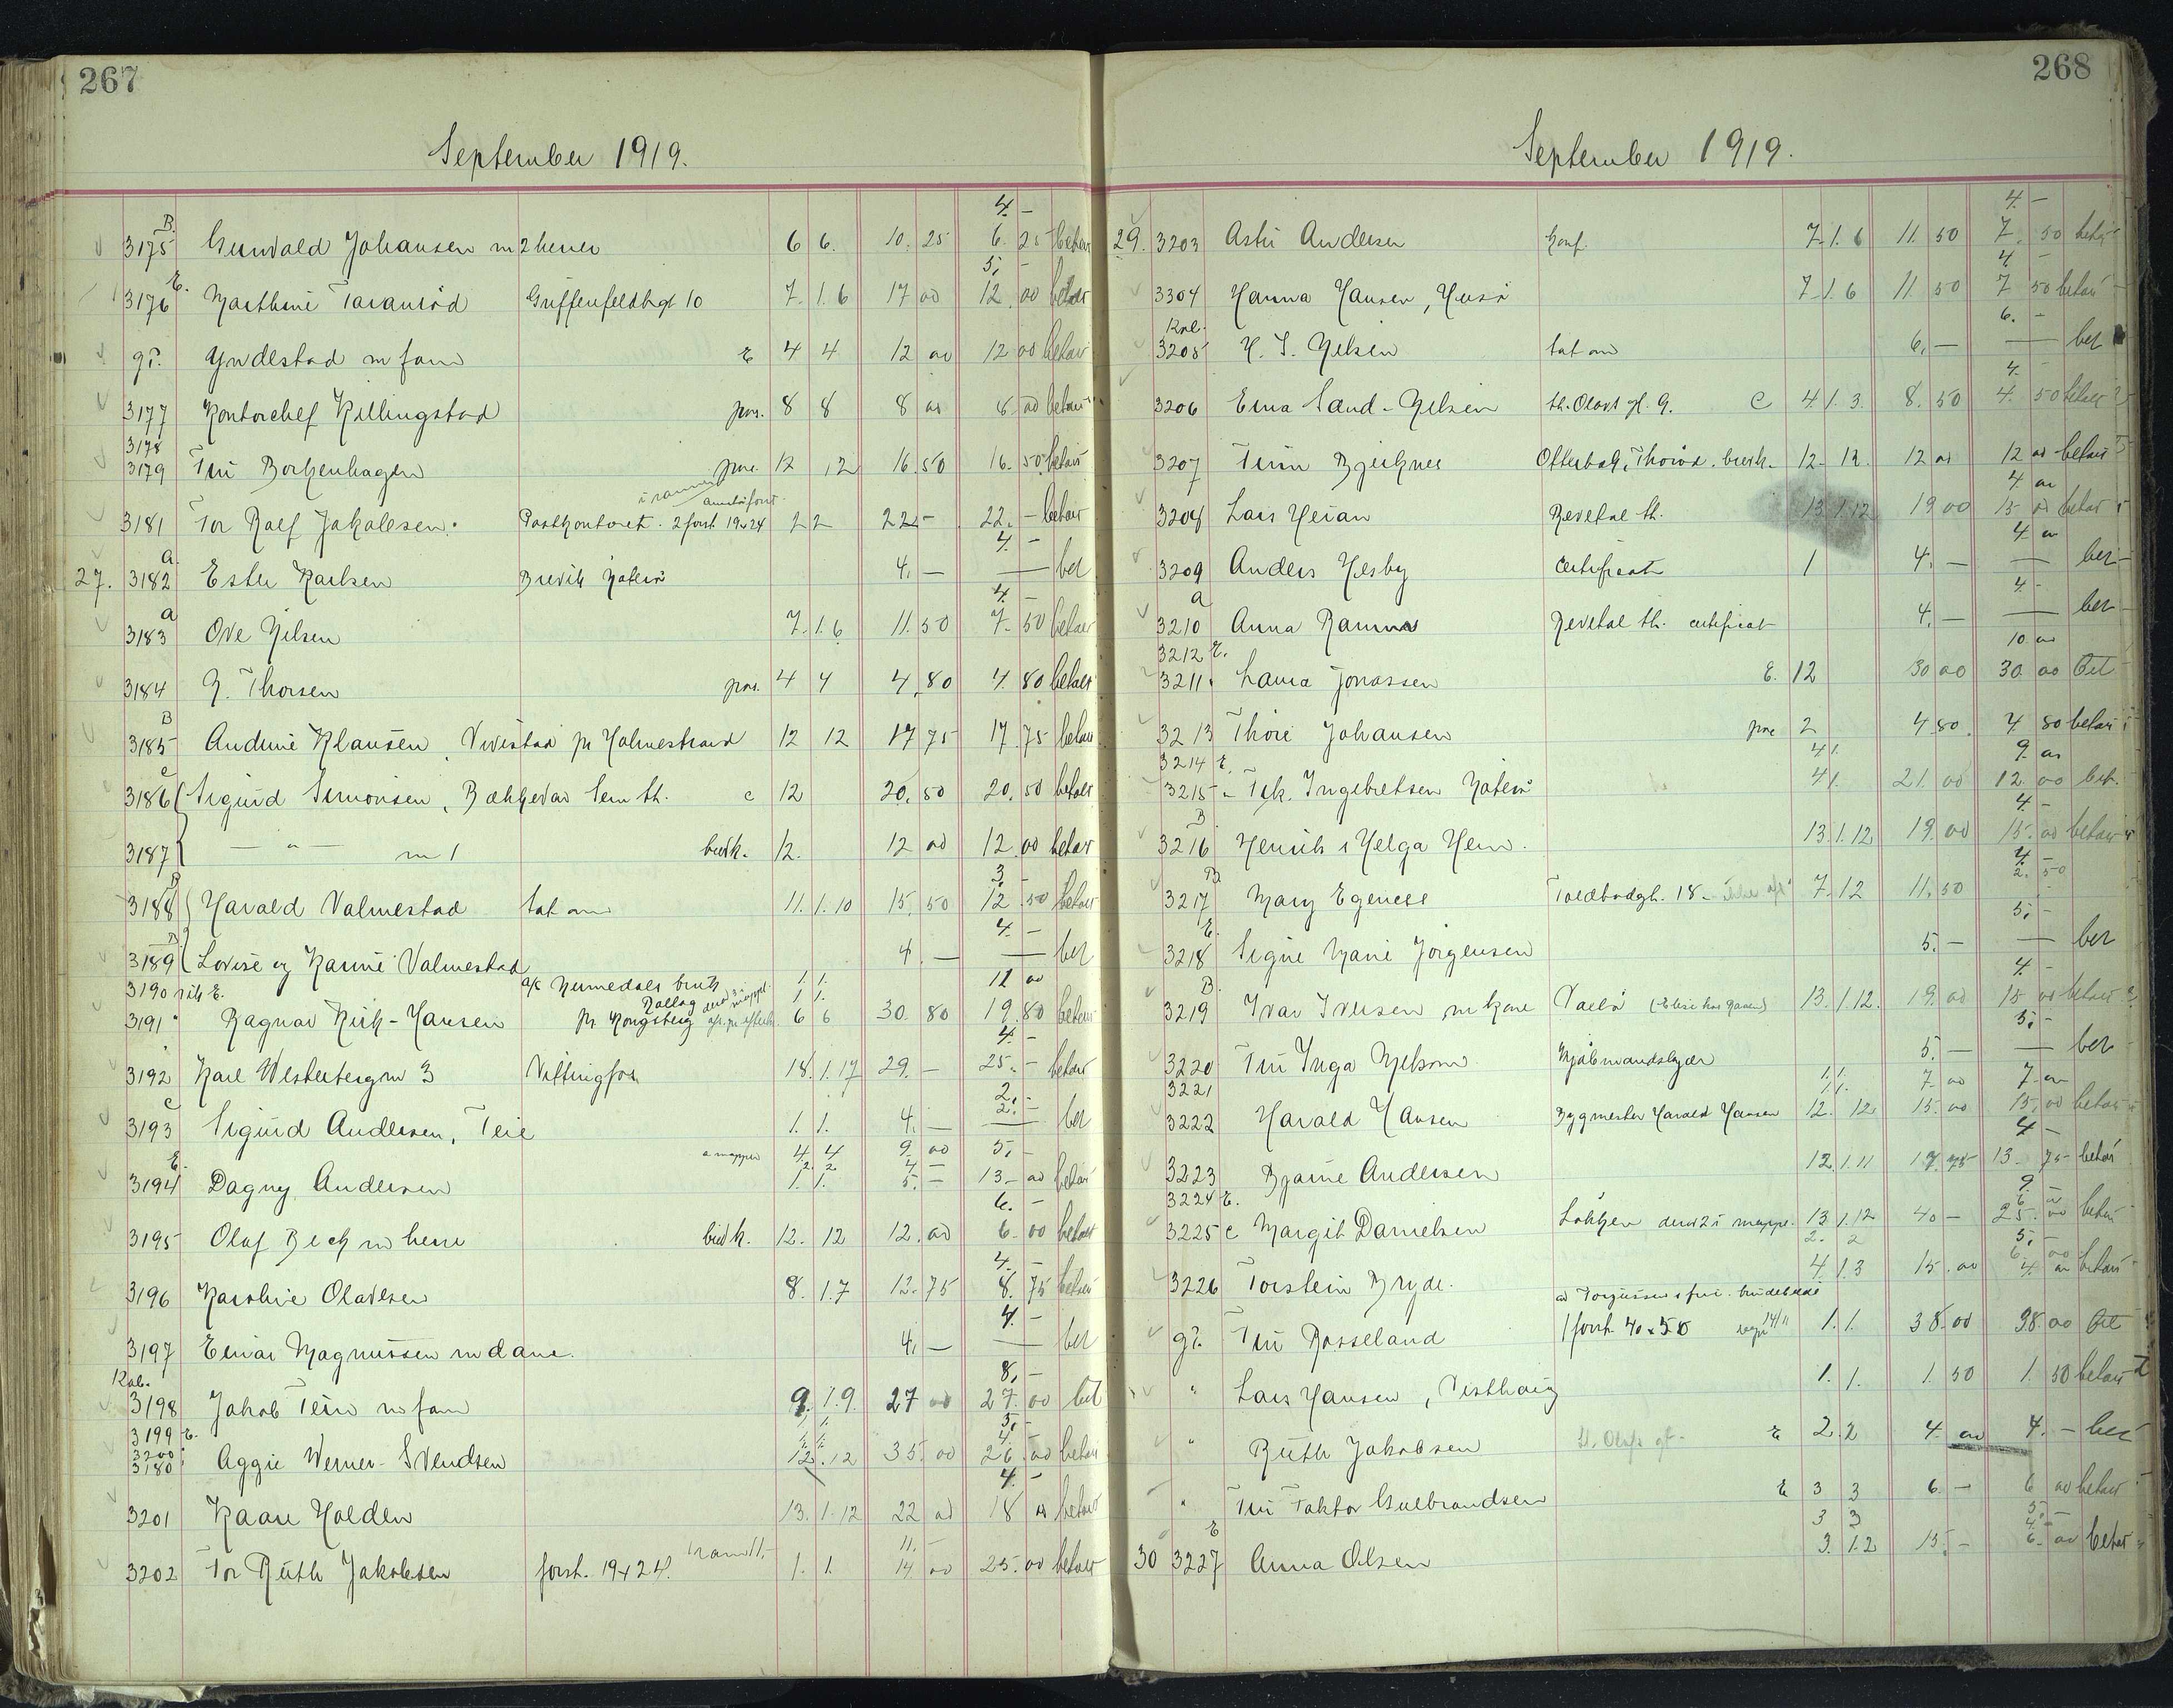 267
September 1919.
4. -
B.
3175 Gunvald Johansen m 2 herrer 6 6. 10. 25 6. 25 betalt
5. -
E.
3176 Marthine Taranrød Griffenfeldtsgt 10 7. 1. 6 17 00 12 00 betalt
gr. Yndestad m fam E 4 4 12 00 12 00 betalt
3177 Kontorchef Killingstad pos. 8 8 8 00 8 00 betalt
3178
3179 Frk Borkenhagen pos. 12 12 16. 50 16. 50 betalt
3181 Tor Ralf Jakobsen. Postkontoret. 2 forst 19x24 2 2 22 - 22. - betalt
4. -
a.
27. 3182 Ester Karlsen Brevik 4. - — bet
4. -
a
3183 Ove Nilsen 7. 1. 6 11. 50 7. 50 betalt
3184 G. Thorsen pos. 4 4 4. 80 4. 80 betalt
B
3185 Andrine Klausen, Vivestad pr Holmestrand 12 12 17 75 17. 75 betalt
c
3186 Sigurd Simonsen, Bækkevar Sem st. c 12 20. 50 20. 50 betalt
3187 — " — m 1 brevk. 12. 12 00 12. 00 betalt
3. -
B
3188 Harald Valmestad tat om 11. 1. 10 15. 50 12 50 betalt
4. -
B
3189 Lovise og Karine Valmestad 4. - — bet
3190 E. a/s Numedals bruk 1. 1. 11 00
Rollag 1 1.
3191 Ragnar Rich-Hansen pr. Kongsberg 6 6 30. 80 19. 80 betalt
4. -
3192 Karl Westerberg m 3 Vittingfoss 18. 1. 17 29. - 25. - betalt
2. -
c
3193 Sigurd Andersen, Teie 1. 1. 4. - 2. - bet
a mappe 4 4 9 00 5. -
E. 2. 2. 4 -
3194 Dagny Andersen 1. 1. 5. - 13 - 00 betalt
6. -
3195 Olaf Beck m herre brevk. 12. 12 12. 00 6. 00 betalt
4. -
3196 Karoline Olavesen 8. 1. 7 12. 75 8. 75 betalt
4. -
3197 Einar Magnussen m dame. 4. - — bet
Kab. 8. -
3198 Jakob Teien m fam 9. 1. 9. 27 00 27. 00 bet
3199 E. 5. -
3200 4. -
3180 Aggie Werner-Svendsen 12. 12 35. 00 26. 00 betalt
4. -
3201 Kaare Holden 13. 1. 12 22 00 18 00 betalt
11. -
3202 Tor Ruth Jakobsen forst. 19x24. 1. 1. 14 00 25. 00 betalt
268
September 1919.
4. -
29. 3203 Astri Andersen Konf. 7. 1. 6 11. 50 7. 50 betalt
4. -
3304 Hanna Hansen, Husø 7. 1. 6 11. 50 7 50 betalt
Kab. 6. -
3205 H. S. Nilsen tat om 6. - — bet
4.
3206 Erna Sand-Nilsen St. Olavs g. 9. C 4. 1. 3. 8. 50 4. 50 betalt
3207 Finn Bjerknes Ofterbak, Thorød. brevk. 12. 12. 12 00 12 00 betalt
4 00
3208 Lars Herian Revetal st. 13. 1. 12 19 00 15 00 betalt
4. 00
3209 Anders Hesby certificat 1 4. - — bet
4. -
a
3210 Anna Ramnes Revetal st. certificat 4. - — bet
3212 E. 10. 00
3211. Laura Jonassen E. 12 30 00 30. 00 Bet
3213 Thore Johansen pos 2 4. 80. 4 80 betalt
3214 E. 4 1. 9. 00
3215 Frk. Ingebretsen 4 1. 21. 00 12 00 bet.
4. -
B
3216 Henrik & Helga Hem. 13. 1. 12 19. 00 15. 00 betalt
4. -
B 2. 50
3217 Mary Egeness Toldbodgt. 18. 7. 12 11. 50
5. -
E.
3218 Signe Marie Jørgensen 5. - — bet
4. -
B.
3219 Ivar Iversen m kone Vaelø 13. 1. 12. 19. 00 15 00 betalt
5. -
3220 Frk Inga Nilsson Kjøbmandskjær 5. - — bet
3221 1. 1. 7. 00 7. 00
3222 Harald Hansen Bygmester Harald Hansen 12. 12. 15. 00 15. 00 betalt
4 -
3223 Bjarne Andersen 12. 1. 11 17. 75 13. 75 betalt
3224 E. 9. -
6. 00
3225 c Margit Danielsen Løkken derav 2 i mappe. 13. 1. 12 40 - 25. 00 betalt
2. 2 5. -
6. 00
3226 Torstein Bryde. 4. 1. 3 15. 00 4. 00 betalt
av Torgussen i fru. brudebillede
gr. Frk Rosseland 1 forst. 40 x 50 1. 1. 38. 00 38. 00 Bet
" Lars Hansen, Vesthaug 1. 1. 1. 50 1. 50 betalt
" Ruth Jakobsen St. Olafs gt. E 2. 2 4. 00 4. - bet
" Fru Faktor Gulbrandsen E 3 3 6. - 6 00 betalt
3 3 5. -
E 4. -
30 3227 Anna Olsen 3. 1. 2 15. - 6. 00 betalt